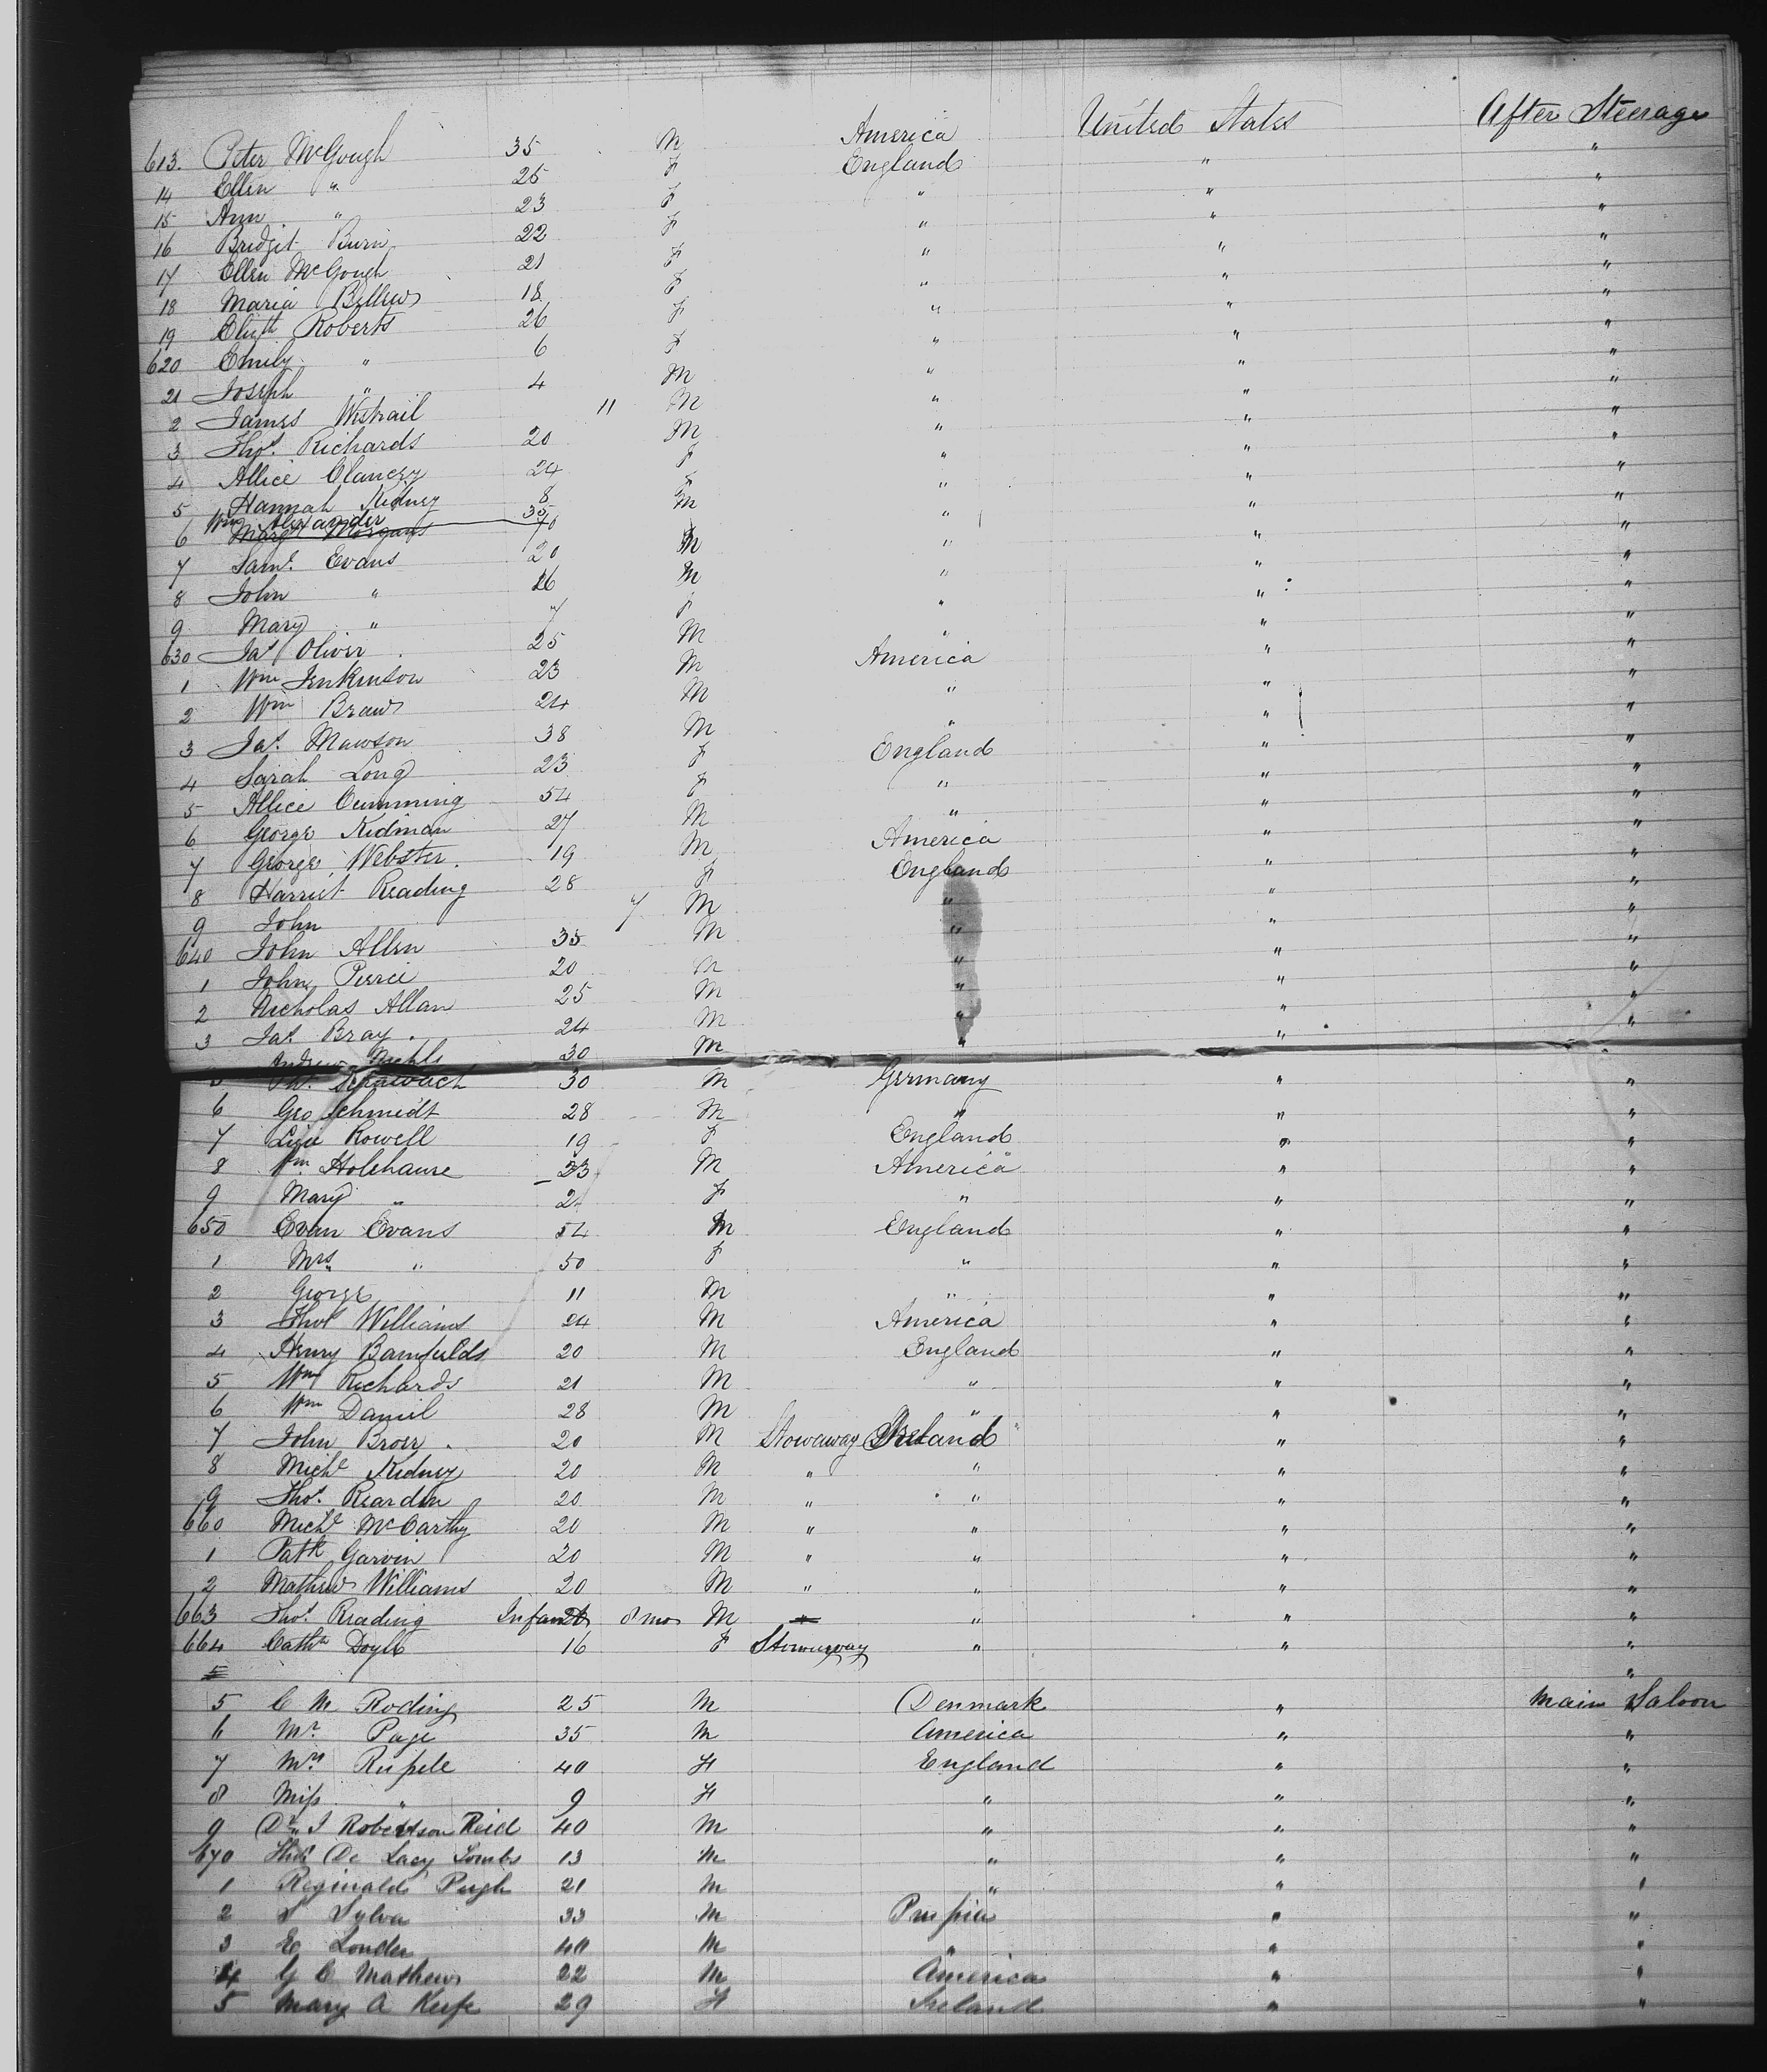 613. Peter McGough 35 M America United States After Steerage
14 Ellen " 25 F England " "
15 Ann " 23 F " " "
16 Bridget Burn 22 F " " "
17 Ellen McGough 21 F " " "
18 Maria Bellew 18 F " " "
19 Elizth Roberts 26 F " " "
620 Emily " 6 F " " "
21 Joseph " 4 M " " "
2 James 11 M " " "
3 Thos. Richards 20 M " " "
4 Allice Clancey 24 F " " "
5 Hannah Kidney 8 F " "
Wm Alexander 35 M
6 Margt Morgans " " "
7 Saml. Evans 20 M " " "
8 John " 26 M " " "
9 Mary " 7 F " " "
630 Jas Oliver 25 M " " "
1 Wm Jenkinson 23 M America " "
2 Wm Braw 24 M " " "
3 Jas. Mawson 38 M " " "
4 Sarah Long 23 F England " "
5 Allice Cumming 54 F " " "
6 George Kidman 27 M " " "
7 George Webster 19 M America " "
8 Harriet Reading 28 F England " "
9 John 7 M " " "
640 John Allen 35 M " " "
1 John Pierce 20 M " " "
2 Nicholas Allan 25 M " " "
3 Jas. Bray 24 M " " "
Andrew 30 M "
30 M Germany " "
6 Geo Schmidt 28 M " " "
7 Lizie Rowell 19 F England " "
8 Wm Holehause 33 M America " "
9 Mary " 2 F " " "
650 Evan Evans 54 M England " "
1 Mrs " 50 F " " "
2 George 11 M " " "
3 Thos Williams 24 M America " "
4 Henry Bamfields 20 M England " "
5 Wm Richards 21 M " " "
6 Wm Daniel 28 M " " "
7 John Broer 20 M Stowaway Ireland " "
8 Michl Kidney 20 M " " " "
9 Thos. Reardon 20 M " " " "
660 Michl McCarthy 20 M " " " "
1 Patk Garvin 20 M " " " "
2 Mathew Williams 20 M " " " "
663 Thos. Reading Infant 8 mos M " " " "
664 Cathn Doyle 16 F Stowaway " " "
"
5 C M Roding 25 M Denmark " Main Saloon
6 Mr. Page 35 M America " "
7 Mrs. Rupele 40 F England " "
8 Miss " 9 F " " "
9 Dr. J Robertson Reid 40 M " " "
670 De Lacy Tombs 13 M " " "
1 Reginald Pugh 21 M " " "
2 S Sylva 33 M Prussia " "
3 E Londer 40 M " " "
4 G C Mathews 22 M America " "
5 Mary A Keefe 29 F Ireland " "